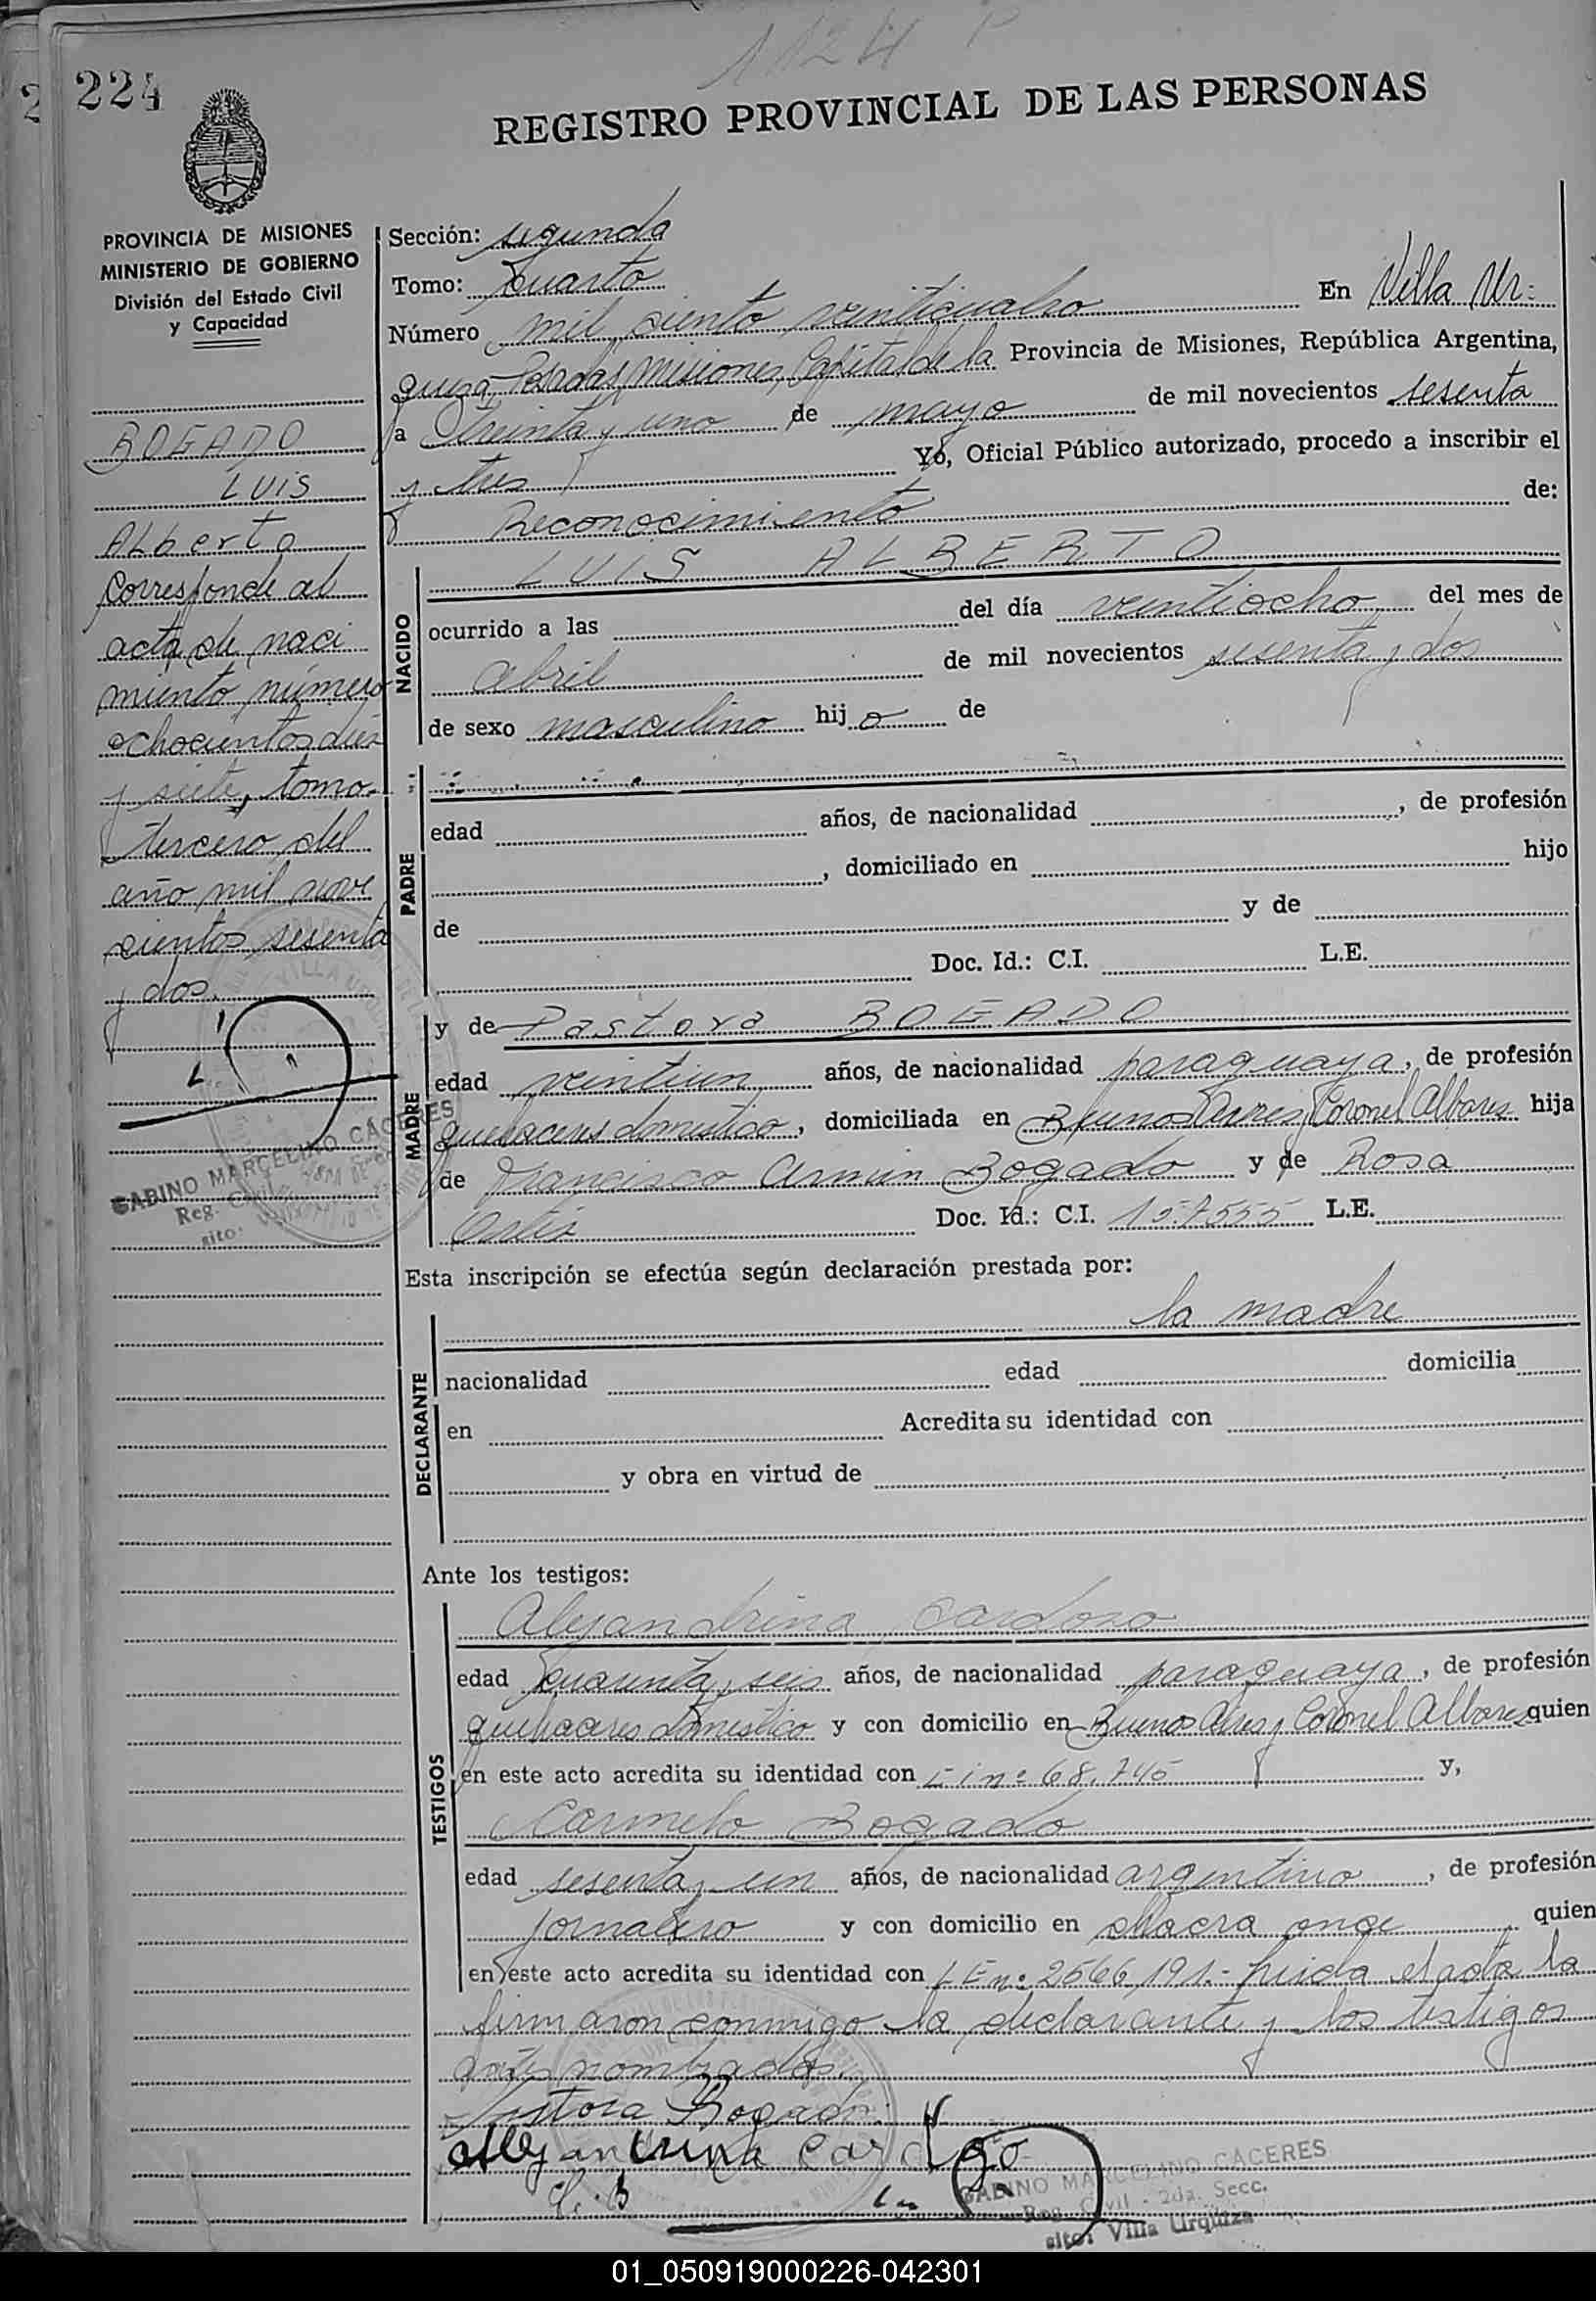 1124 P
224
REGISTRO PROVINCIAL DE LAS PERSONAS
PROVINCIA DE MISIONES
MINISTERIO DE GOBIERNO
División del Estado Civil
y Capacidad
BOGADO
LUIS
ALberto
Corresponde al
acta de naci
miento número
ochocientos diez
y siete, tomo
tercero del
año mil nove
cientos sesenta
y dos.
GABINO MARCELINO CACERES
Reg. Civil
sito:
Sección: segunda
Tomo: Cuarto
Número mil ciento veinticuatro En Villa Ur=
quiza, Posadas, Misiones, Capital de la Provincia de Misiones, República Argentina,
a treinta y uno de mayo de mil novecientos sesenta
y tres Yo, Oficial Público autorizado, procedo a inscribir el
Reconocimiento de:
NACIDO
LUIS ALBERTO
ocurrido a las del día veintiocho del mes de
abril de mil novecientos sesenta y dos
de sexo masculino hijo de
PADRE
edad años, de nacionalidad , de profesión
, domiciliado en hijo
de y de
Doc. Id.: C.I. L.E.
MADRE
y de Pastora BOGADO
edad veintiun años, de nacionalidad paraguaya, de profesión
quehaceres domestico, domiciliada en Buenos Aires y Coronel Albares hija
de Francisco Bogado y de Rosa
Doc. Id.: C.I. 157555 L.E.
Esta inscripción se efectúa según declaración prestada por:
DECLARANTE
la madre
nacionalidad edad domicilia
en Acredita su identidad con
y obra en virtud de
Ante los testigos:
TESTIGOS
Alejandrina Cardozo
edad cuarenta y seis años, de nacionalidad paraguaya, de profesión
quehaceres domestico y con domicilio en Buenos Aires y Coronel Albares quien
en este acto acredita su identidad con nº 68.745 y,
Carmelo Bogado
edad sesenta y un años, de nacionalidad argentino, de profesión
jornalero y con domicilio en chacra once quien
en este acto acredita su identidad con LE nº 2566,191.- leida el acta la
firmaron conmigo la declarante y los testigos
antes nombrados.
Pastora Bogado
Alejandrina Cardozo
C. B
GABINO MARCELINO CACERES
Reg. Civil - 2da. Secc.
sito: Villa Urquiza
01_050919000226-042301